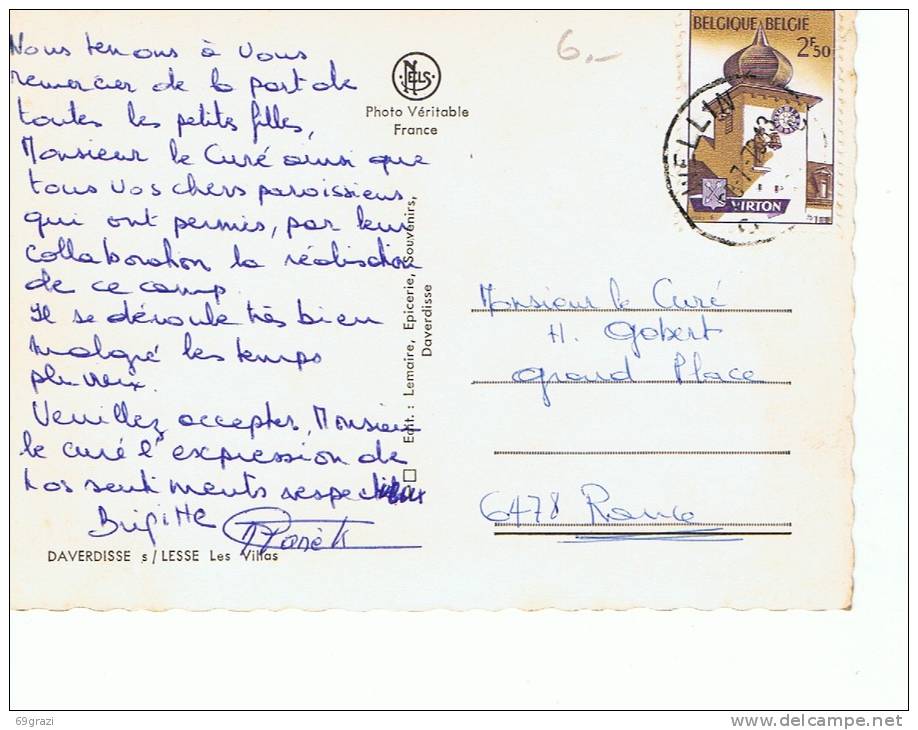 Nous tenons à vous
remercier de la part de
toutes les petites filles,
Monsieur le Curé ainsi que
tous vos chers paroissiens,
qui ont permis, par leur
collaboration la réalisation
de ce camp.
Il se déroule très bien
malgré les temps
pluvieux.
Veuillez accepter, Monsieur
le curé l'expression de
nos sentiments respectueux
Brigitte
DAVERDISSE s/ LESSE Les Villas
NELS
Photo Véritable
France
Edit. : Lemaire, Epicerie, Souvenirs,
Daverdisse
6.-
BELGIQUE BELGIË
2F50
VIRTON
WELLIN
Monsieur le Curé
H. Gobert
Grand Place
6478 Rance
69grazi
delcampe.net